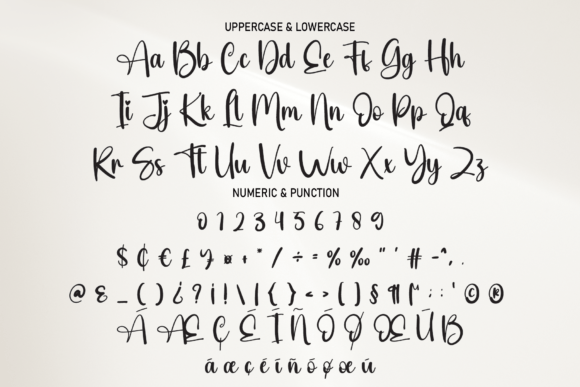 UPPERCASE & LOWERCASE
Aa Bb Cc Dd Ee Ff Gg Hh
Ii Jj Kk Ll Mm Nn Oo Pp Qq
Rr Ss Tt Uu Vv Ww Xx Yy Zz
NUMERIC & PUNCTION
0 1 2 3 4 5 6 7 8 9
$ ¢ € £ ¥ ¤ + * / ÷ = % ‰ " ' # - ^ , .
@ & _ ( ) ¿ ? ¡ ! \ | { } < > [ ] § ¶ : ; ' © ®
Á Æ Ç É Í Ñ Ó Ø Œ Ú ß
á æ ç é í ñ ó ø œ ú